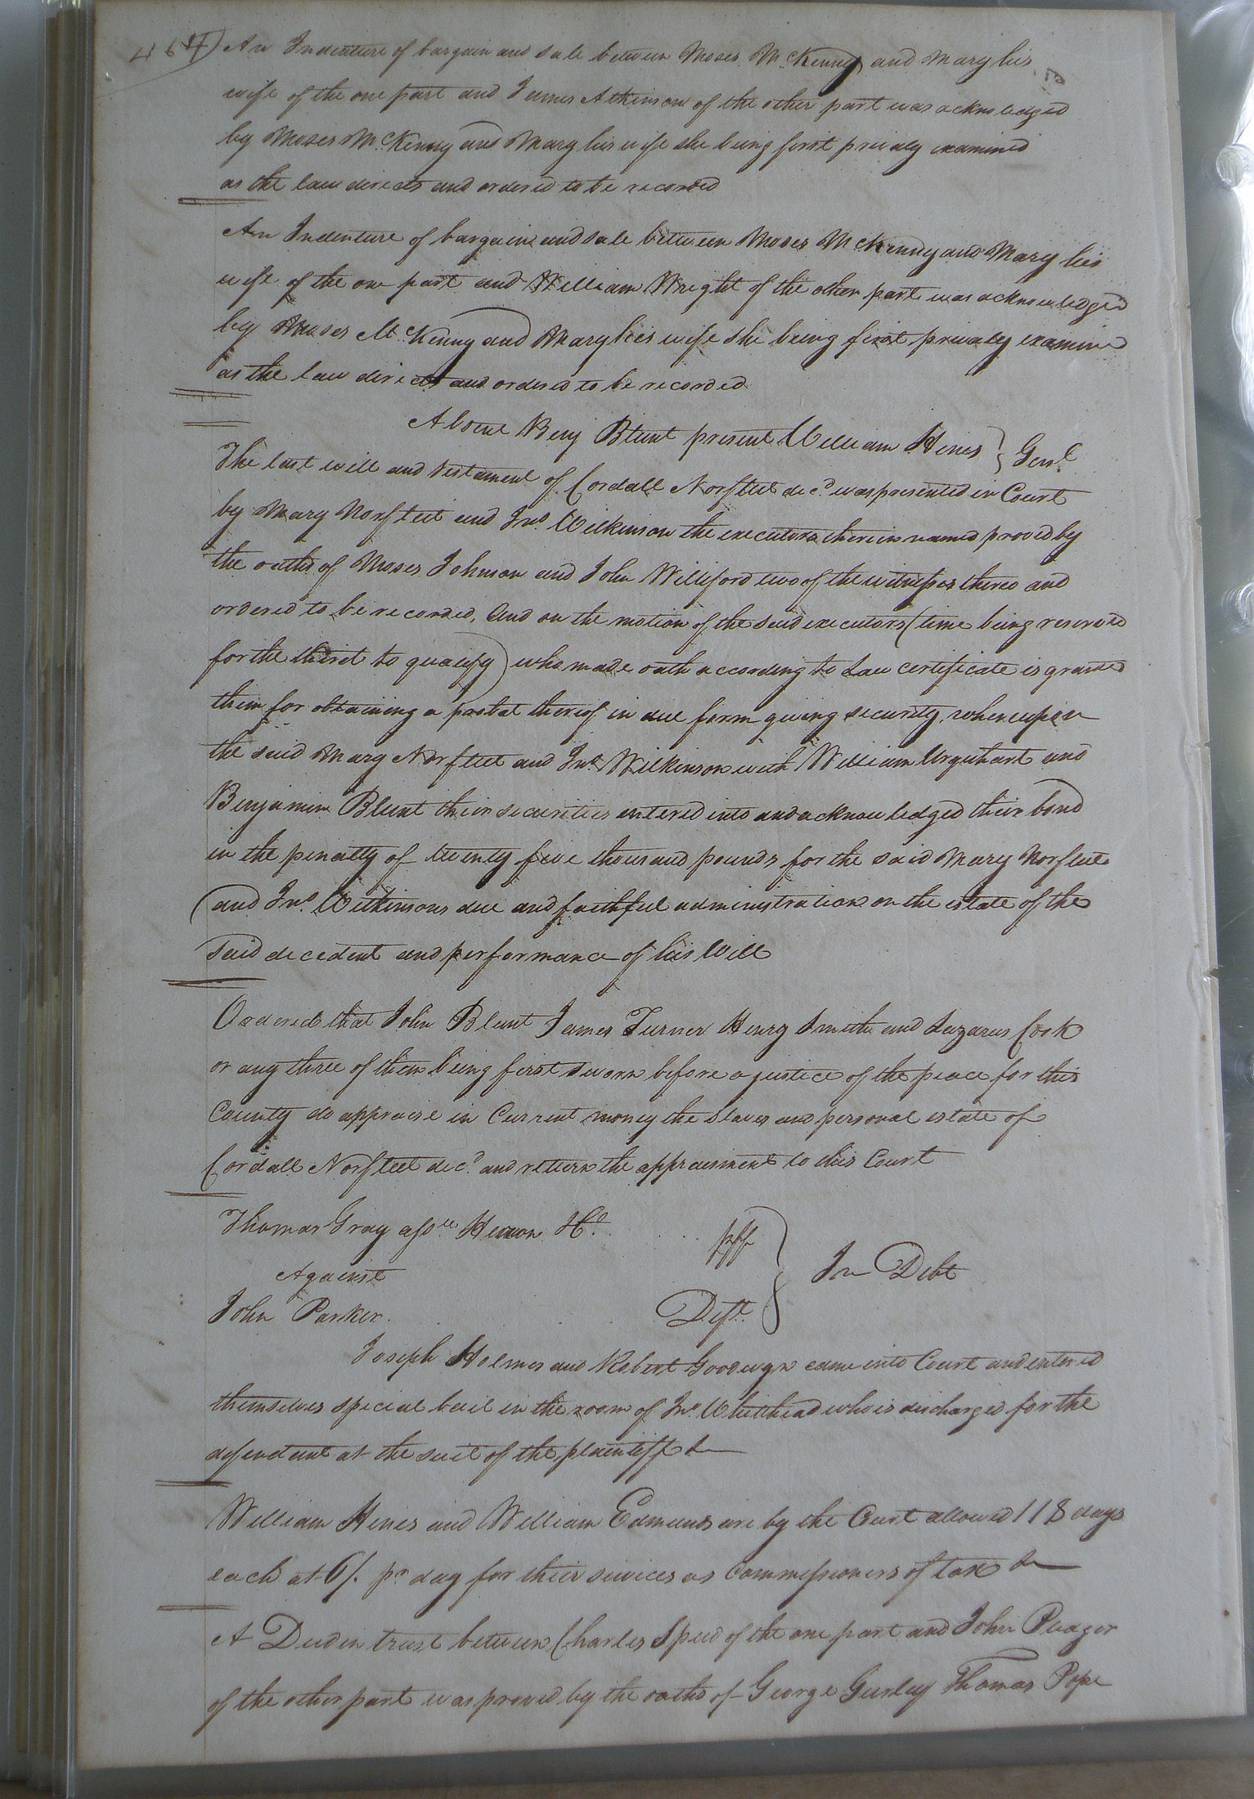 464) An Indenture of bargain and sale between Moses McKenny and Mary his
wife of the one part and James Atkinson of the other part was acknowledged
by Moses McKenny and Mary his wife she being first privily examined
as the law directs and ordered to be recorded
An Indenture of bargain and sale between Moses McKenny and Mary his
wife of the one part and William Wright of the other part was acknowledged
by Moses McKenny and Mary his wife she being first privaly examined
as the law directs and ordered to be recorded
Absent Benj Blunt present William Hines } Gen.l
The last will and testament of Cordall Norfleet dec.d was presented in Court
by Mary Norfleet and Jno. Wilkinson the executors therein named proved by
the oaths of Moses Johnson and John Williford two of the witnesses thereto and
ordered to be recorded, And on the motion of the said executors (time being reserved
for the third to qualify) who made oath according to Law certificate is granted
them for obtaining a probat thereof in due form giving security, whereupon
the said Mary Norfleet and Jno. Wilkinson with William Urquhart and
Benjamin Blunt their securities entered into and acknowledged their bond
in the penalty of twenty five thousand pounds for the said Mary Norfleets
and Jno. Wilkinsons due and faithful administration on the estate of the
said decedent and performance of his Will
Ordered that John Blunt James Turner Henry Smith and Lazarus Cook
or any three of them being first sworn before a justice of the peace for this
County do appraise in Current money the slaves and personal estate of
Cordall Norfleet dec.d and return the appraisment to this Court
Thomas Gray ass.ee Hixson . . . plff
Against } In Debt
John Parker. Deft.
Joseph Holmes and Robert Goodwyn came into Court and entered
themselves special bail in the room of Jno. Whitehead who is discharged for the
defendant at the suit of the plaintiff &
William Hines and William Edmunds are by the Court allowed 118 days
each at 6/. pr day for their services as commissioners of tax &
A Deed in trust between Charles Speed of the one part and John Peagor
of the other part was proved by the oaths of George Gurley Thomas Pope